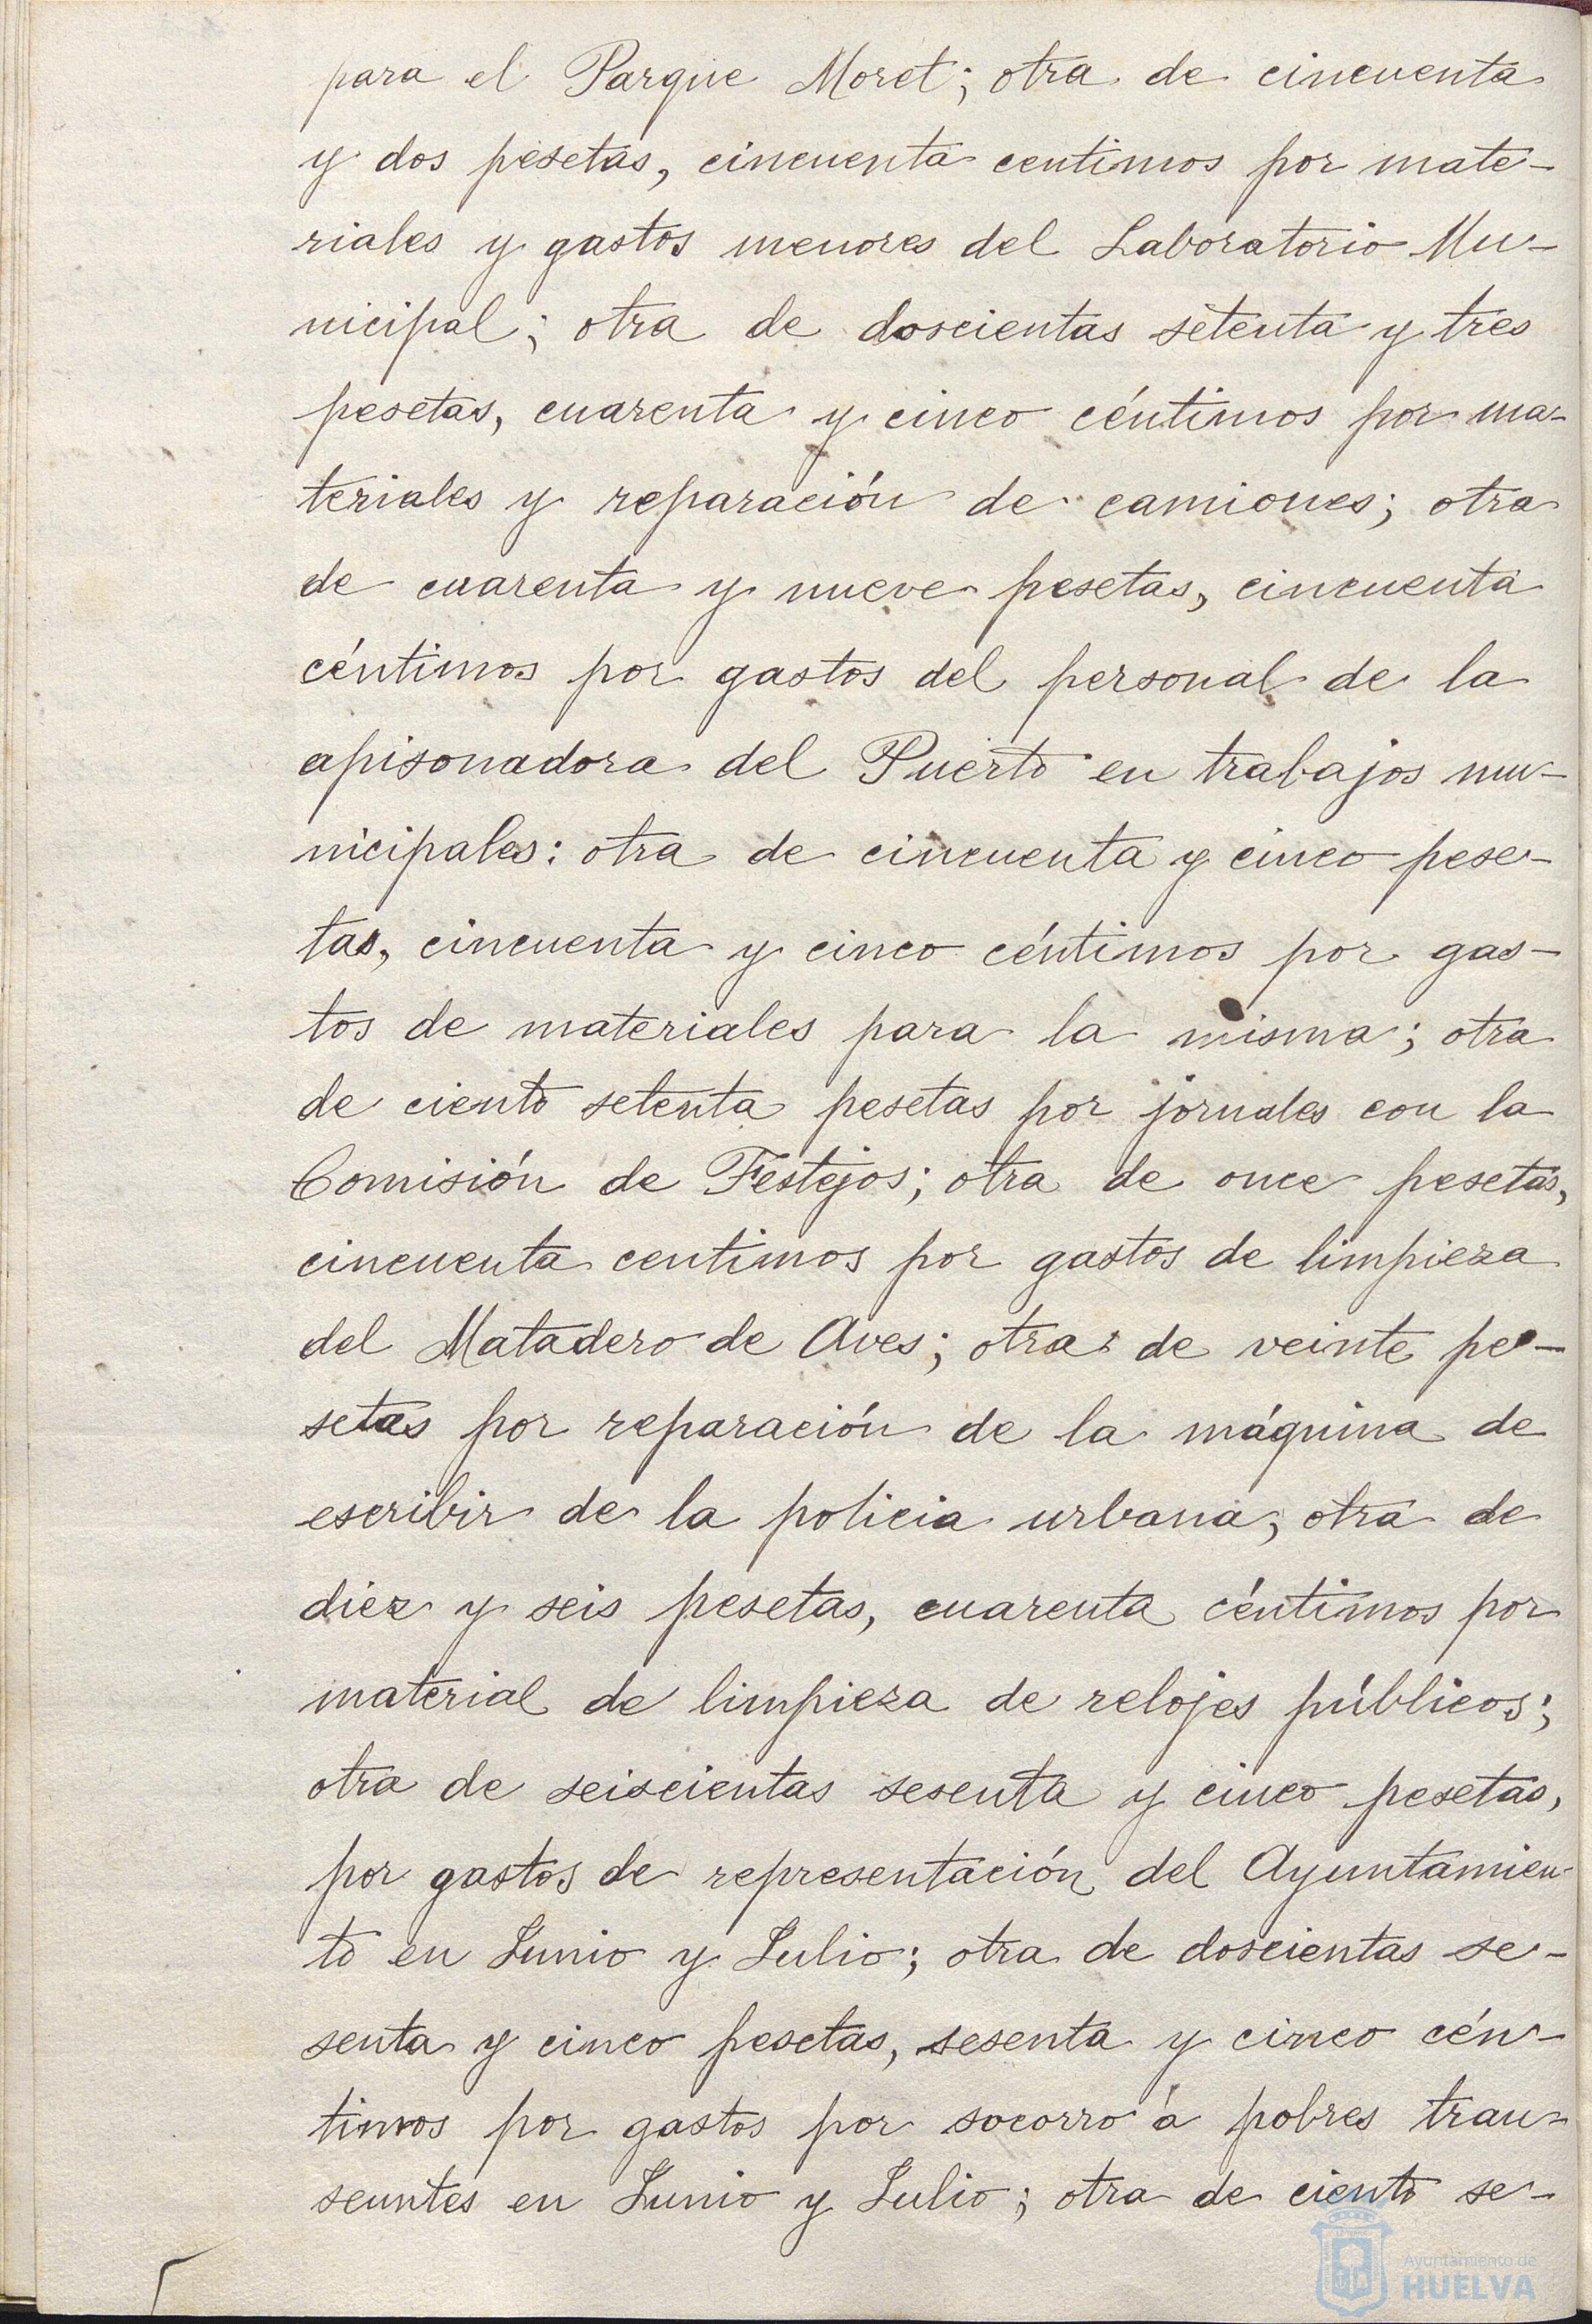 para el Parque Moret; otra de cincuenta
y dos pesetas, cincuenta centimos por mate-
riales y gastos menores del Laboratorio Mu-
nicipal; otra de doscientas setenta y tres
pesetas, cuarenta y cinco céntimos por ma-
teriales y reparación de camiones; otra
de cuarenta y nueve pesetas, cincuenta
céntimos por gastos del personal de la
apisonadora del Puerto en trabajos mu-
nicipales: otra de cincuenta y cinco pese-
tas, cincuenta y cinco céntimos por gas-
tos de materiales para la misma; otra
de ciento setenta pesetas por jornales con la
Comisión de Festejos; otra de once pesetas,
cincuenta centimos por gastos de limpieza
del Matadero de Aves; otra de veinte pe-
setas por reparación de la máquina de
escribir de la policia urbana; otra de
diez y seis pesetas, cuarenta céntimos por
material de limpieza de relojes públicos;
otra de seiscientas sesenta y cinco pesetas,
por gastos de representación del Ayuntamien-
to en Junio y Julio; otra de doscientas se-
senta y cinco pesetas, sesenta y cinco cén-
timos por gastos por socorro á pobres tran-
seuntes en Junio y Julio; otra de ciento se-
Ayuntamiento de
HUELVA